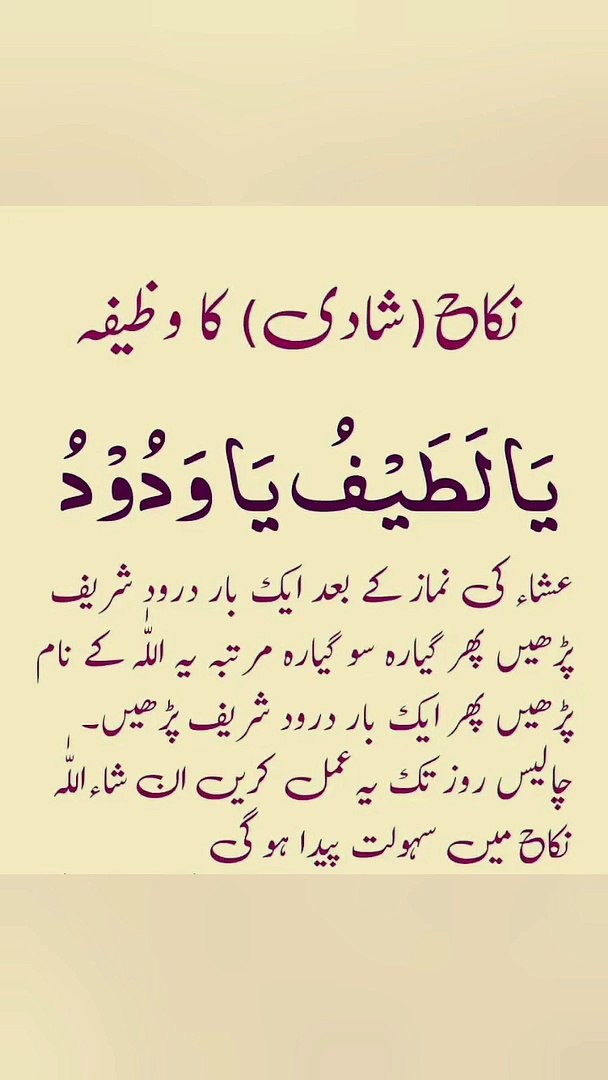 نکاح (شادی) کا وظیفہ
يَا لَطَيْفُ يَا وَدُوْدُ
عشاء کی نماز کے بعد ایک بار درود شریف
پڑھیں پھر گیارہ سو گیارہ مرتبہ یہ اللّٰہ کے نام
پڑھیں پھر ایک بار درود شریف پڑھیں۔
چالیس روز تک یہ عمل کریں ان شاء اللّٰہ
نکاح میں سہولت پیدا ہو گی